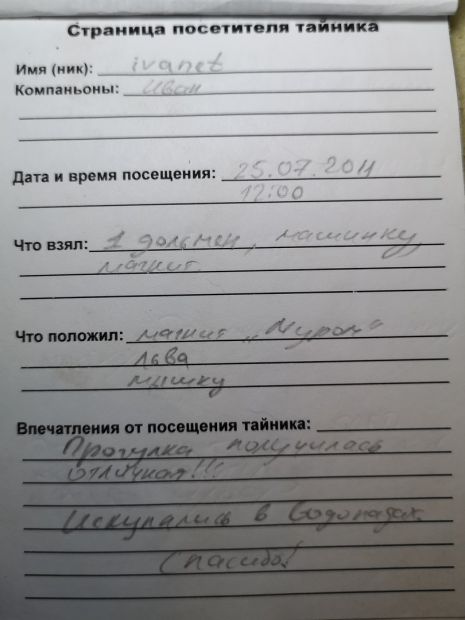 Страница посетителя тайника
Имя (ник): ivanet
Компаньоны: Иван
Дата и время посещения: 25.07.2011
12:00
Что взял: 1 дольмен, машинку,
магнит.
Что положил: магнит „Муром“
льва
мышку
Впечатления от посещения тайника:
Прогулка получилась
отличная!!!
Искупались в водопадах.
Спасибо!